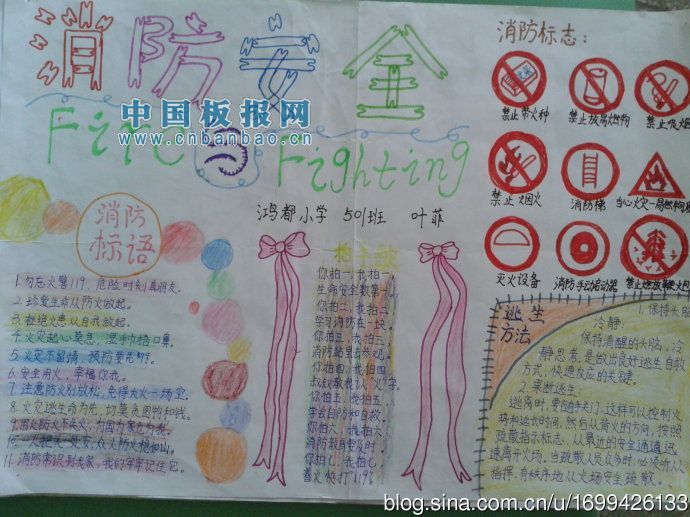 消防安全
中国板报网
www.cnbanbao.cn
Fire Fighting
鸿都小学 501班 叶菲
消防
标语
1. 勿忘火警119,危险时刻真朋友。
2. 珍爱生命从防火做起。
3. 杜绝火患从自我做起。
4. 火灾起心莫急,湿手捂口鼻。
5. 火灾不留情,预防要先行。
6. 安全用火,幸福你我。
7. 注意防火别放松,免得大火一场空。
8. 火灾逃生命为先,切莫贪图物和钱。
9. 用火防火不失火,为国为家立为我。
10. 一火把火灾,众人防火稳如山。
11. 消防常识到我家,我们牢牢记住它。
拍手歌
你拍一,我拍一,
生命安全数第一
你拍二,我拍二
学习消防在一块。
你拍三,我拍三
消防站里去参观。
你拍四,我拍四
叔叔教我认"火"字
你拍五,我拍五,
学会自防和自救
你拍六,我拍六,
消防教育要及时。
你拍七,我拍七
着火快打119
消防标志:
禁止带火种
禁止放易燃物
禁止吸烟
禁止烟火
消防梯
当心火灾—易燃物
灭火设备
消防手动启动器
禁止燃放鞭炮
逃生
方法
1. 保持头脑
冷静:
保持清醒的头脑,冷
静思考,是做出良好逃生自救
方式,快速反应的关键。
2. 果断逃生:
逃离时,要随手关门,这样可以控制火
势和延长时间,然后从背火的方向,按照
疏散指示标志,从最近的安全通道迅
速离开火场。当疏散人员众多时,必须听从
指挥,有秩序地从火场安全疏散。
blog.sina.com.cn/u/1699426133